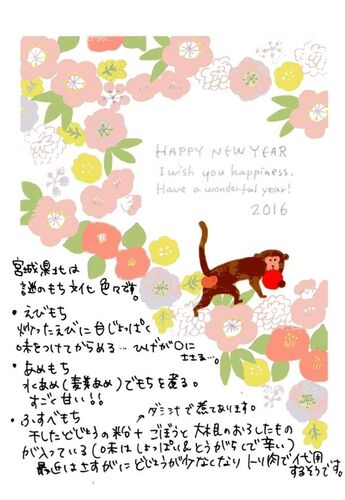 HAPPY NEW YEAR
I wish you happiness.
Have a wonderful year!
2016
宮城県北は
謎のもち文化色々です。
・えびもち
炒ったえびに甘じょっぱく
味をつけてからめる…ひげが口に
ささる…。
・あめもち
水あめ(麦芽あめ)でもちを煮る。
すごく甘い!!
・ふすべもち
ダシ汁で煮てあります。
干したどじょうの粉+ごぼうと大根のおろしたもの
が入っている(味はしょっぱい&とうがらしで辛い)
最近はさすがにどじょうが少なくなりトリ肉で代用
するそうです。